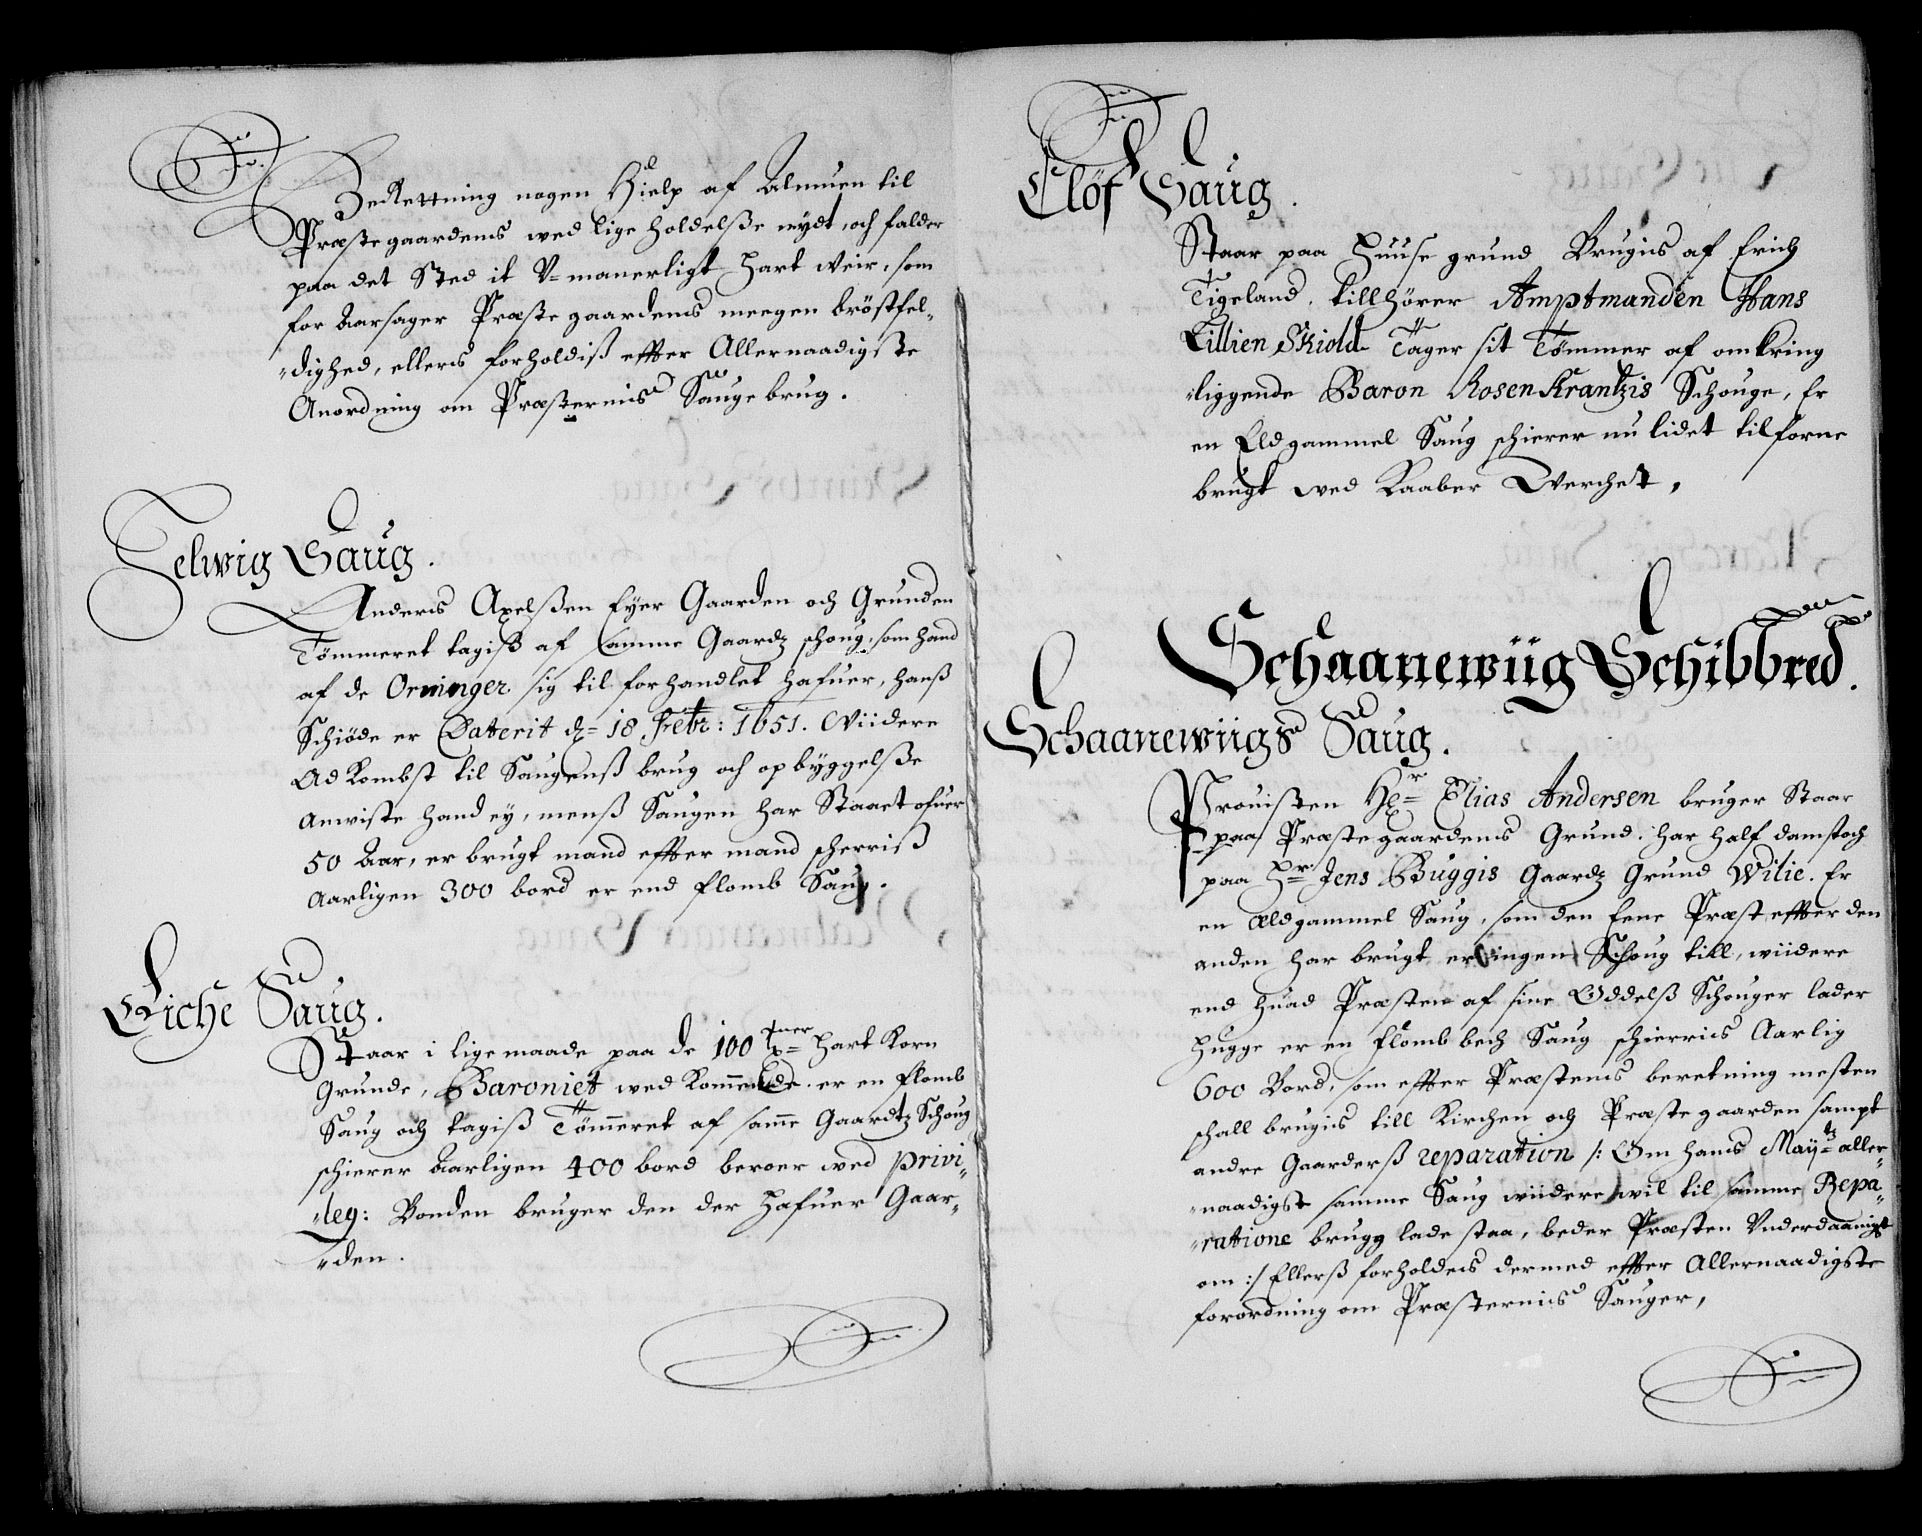 Beretning nogen Hielp af Almuen til
Præstegaardens wed lige holdelße nydt, och falder
paa det Sted it V-manerligt Hart Weir, som
for Aarsager Præstegaardens meegen bröstfel-
dighed, ellers forholdiß effter Allernaadigste
Anordning om Præsternis Sauge brug.
Selwig Saug.
Anders Axelßen Eyer Gaarden och Grunden
Tömmeret tagiß af samme Gaardz schoug, som hand
af de Orninger sig til forhandlet hafuer, hanß
Schiöde er Daterit d= 18 Febr: 1651. Wiidere
Adkombst til Saugenß brug och opbyggelße
Anwiste hand ey, menß Saugen har Staaet ofuer
50 Aar, er brugt mand effter mand scherriß
Aarligen 300 bord er end flomb Saug.
Liche Saug.
Staar i lige maade paa de 100 Tner Hart Korn
Grunde, Baroniet wed Kommende er en flomb
Saug och tagiß Tömeret af same Gaardtz Schoug
schierer Aarligen 400 bord beroer wed privi-
leg: Bonden bruger den der Hafuer Gaar-
den.
Elöf Saug.
Staar paa Huuse grund Brugis af Erich
Tigeland. tillhörer Amptmanden Hans
Lillien Skiold Tager sit Tömmer af omkring
liggende Baron Rosen Krantzis Schouge, Er
en Eldgammel Saug schierer nu lidet tilforne
brugt wed Kaaber Werchet,
Schaanewiig Schibbred.
Schaanewiigs Saug.
Prouisten Hr= Elias Andersen bruger Staar
paa Præstegaardens Grund. har half damstoch
paa Hr Jens Buggis Gaardz Grund Wilie. Er
en ældgammel Saug, som den Eene Præst effter den
anden har brugt er ingen Schoug till, wiidere
end huad Præsten af sine Oddelß Schouger lader
Hugge er en flomb bech Saug schierris Aarlig
600 Bord, som effter Præstens beretning mesten
schall brugis till Kirchen och Præstegaarden sampt
andre Gaarderß reparation /: Om hans Maytz aller-
naadigst samme Saug wiidere wil til samme Repa-
ratione brugg lade staa, beder Præsten Vnderdaanigst
om :/ Ellerß forholdes dermed effter Allernaadigste
forordning om Præsternis Sauger,